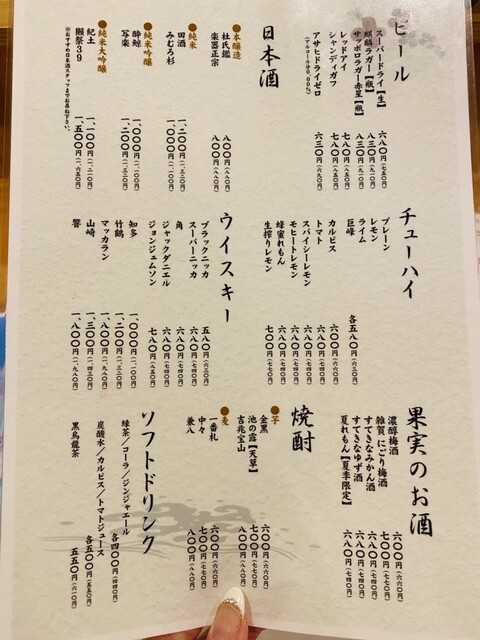 ビール
スーパードライ【生】 六八〇円(七五〇円)
麒麟ラガー【瓶】 八三〇円(九一〇円)
サッポロラガー赤星【瓶】 八三〇円(九一〇円)
レッドアイ 七八〇円
シャンディガフ 七八〇円
アサヒドライゼロ 六三〇円
(アルコール分0.00%)
日本酒
●本醸造
杜氏鑑 八〇〇円(八八〇円)
楽器正宗 八〇〇円(八八〇円)
●純米
田酒 一、二〇〇円(一、三二〇円)
みむろ杉 一、〇〇〇円(一、一〇〇円)
●純米吟醸
酔鯨 一、〇〇〇円(一、一〇〇円)
写楽 一、二〇〇円(一、三二〇円)
●純米大吟醸
紀土 一、一〇〇円(一、二一〇円)
獺祭39 一、五〇〇円(一、六五〇円)
※おすすめ日本酒スタッフまでお尋ね下さい。
チューハイ
プレーン
レモン
ライム
巨峰
各五八〇円(六三〇円)
カルピス 六八〇円(七四〇円)
トマト 六八〇円(七四〇円)
スパイシーレモン 六八〇円(七四〇円)
モヒートレモン 六八〇円(七四〇円)
蜂蜜れもん 六八〇円(七四〇円)
生搾りレモン 七〇〇円(七七〇円)
ウイスキー
ブラックニッカ 五八〇円(六三〇円)
スーパーニッカ 六八〇円(七四〇円)
角 六八〇円(七四〇円)
ジャックダニエル 六八〇円(七四〇円)
ジョンジェムソン 七八〇円
知多 一、〇〇〇円(一、一〇〇円)
竹鶴 一、二〇〇円(一、三二〇円)
マッカラン 一、八〇〇円(一、九八〇円)
山崎 一、三〇〇円(一、四三〇円)
響 一、八〇〇円(一、九八〇円)
果実のお酒
濃醇梅酒 六〇〇円(六六〇円)
雑賀 にごり梅酒 七〇〇円(七七〇円)
すてきなみかん酒 六八〇円(七四〇円)
すてきなゆず酒 六八〇円(七四〇円)
夏れもん【夏季限定】 六八〇円(七四〇円)
焼酎
●芋
金黒 六〇〇円(六六〇円)
池の露【天草】 七〇〇円(七七〇円)
吉兆宝山 八〇〇円(八八〇円)
●麦
一番札 六〇〇円(六六〇円)
中々 七〇〇円(七七〇円)
兼八 八〇〇円(八八〇円)
ソフトドリンク
緑茶/コーラ/ジンジャエール 各四〇〇円(四四〇円)
炭酸水/カルピス/トマトジュース 各五〇〇円(五五〇円)
黒烏龍茶 五五〇円(六一〇円)